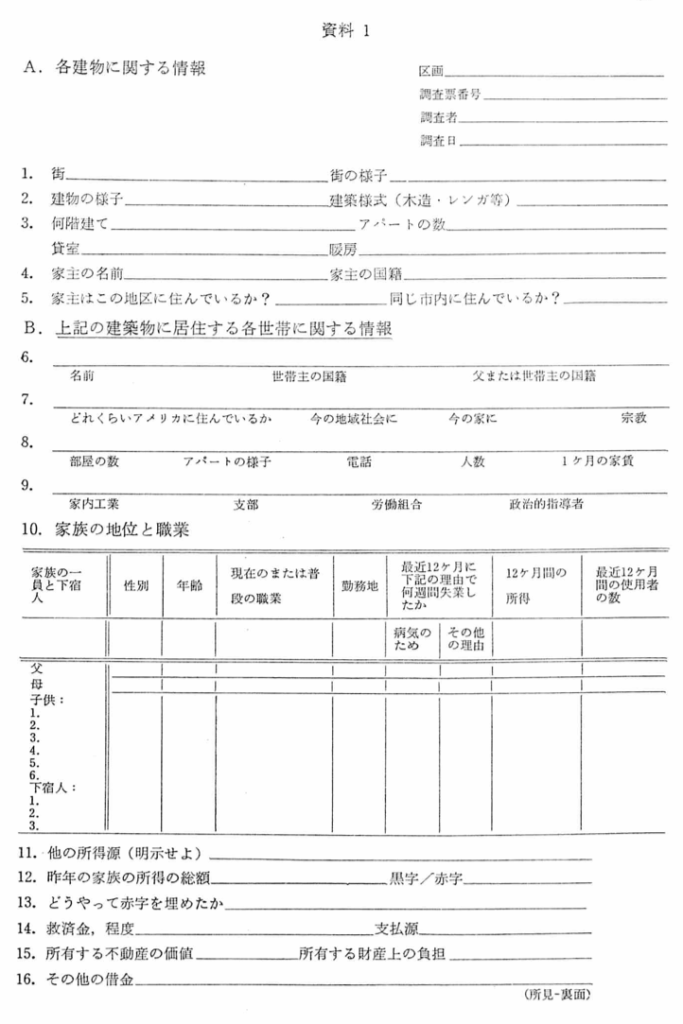 資料 1
A. 各建物に関する情報
区画
調査票番号
調査者
調査日
1. 街 街の様子
2. 建物の様子 建築様式（木造・レンガ等）
3. 何階建て アパートの数
貸室 暖房
4. 家主の名前 家主の国籍
5. 家主はこの地区に住んでいるか？ 同じ市内に住んでいるか？
B. 上記の建築物に居住する各世帯に関する情報
6.
名前 世帯主の国籍 父または世帯主の国籍
7.
どれくらいアメリカに住んでいるか 今の地域社会に 今の家に 宗教
8.
部屋の数 アパートの様子 電話 人数 1ケ月の家賃
9.
家内工業 支部 労働組合 政治的指導者
10. 家族の地位と職業
家族の一員と下宿人 性別 年齢 現在のまたは普段の職業 勤務地 最近12ケ月に下記の理由で何週間失業したか 12ケ月間の所得 最近12ケ月間の使用者の数
病気のため その他の理由
父
母
子供：
1.
2.
3.
4.
5.
6.
下宿人：
1.
2.
3.
11. 他の所得源（明示せよ）
12. 昨年の家族の所得の総額 黒字／赤字
13. どうやって赤字を埋めたか
14. 救済金，程度 支払源
15. 所有する不動産の価値 所有する財産上の負担
16. その他の借金
(所見-裏面)